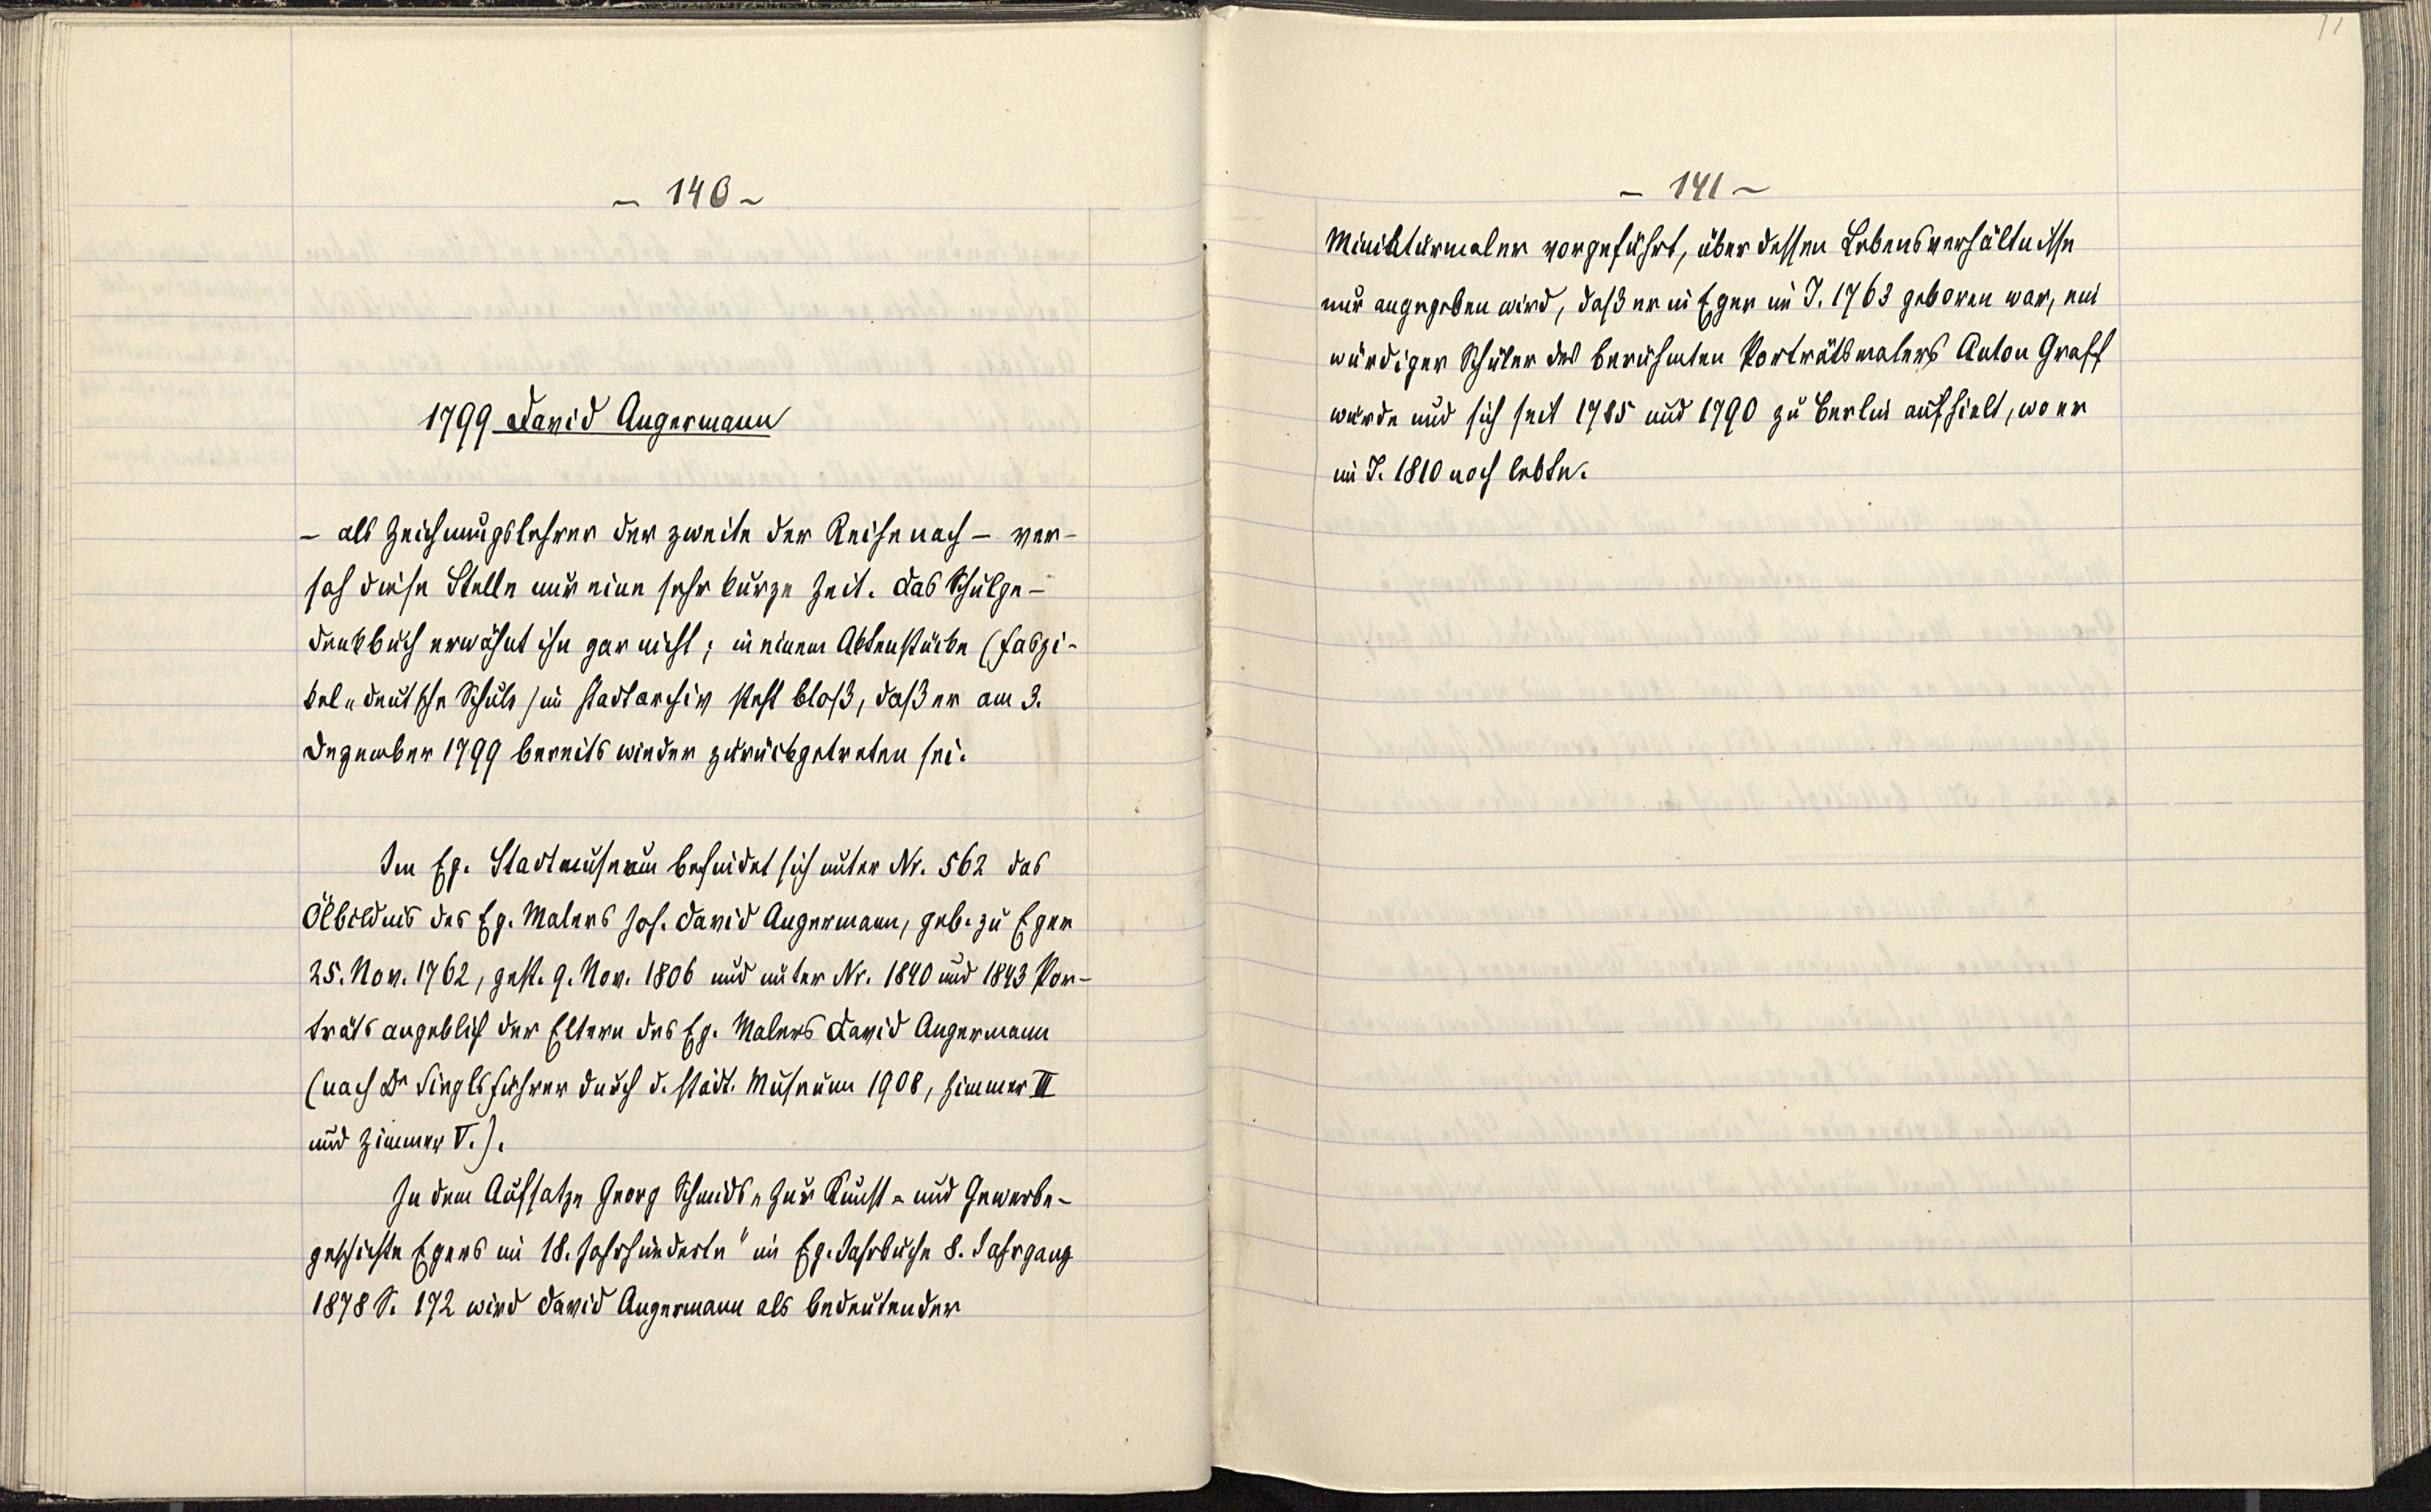 – 140 –
1799 David Angermann
– als Zeichnungslehrer der zweite der Reihe nach – ver-
sah diese Stelle nur eine sehr kurze Zeit. Das Schulge-
denkbuch erwähnt ihn gar nicht; in einem Aktenstücke (Faszi-
kel „deutsche Schule) im Stadtarchiv steht bloß, daß er am 3.
Dezember 1799 bereits wieder zurückgetreten sei.
Im Eg. Stadtmuseum befindet sich unter Nr. 562 das
Ölbildnis des Eg. Malers Joh. David Angermann, geb. zu Eger
25. Nov. 1762, gest. 9. Nov. 1806 und unter Nr. 1840 und 1843 Por-
träts angeblich der Eltern des Eg. Malers David Angermann
(nach Dr Siegls Führer durch d. städt. Museum 1908, Zimmer III
und Zimmer V.).
In dem Aufsatze Georg Schmids „Zur Kunst- und Gewerbe-
geschichte Egers im 18. Jahrhunderte" im Eg. Jahrbuche 8. Jahrgang
1878 S. 172 wird David Angermann als bedeutender
– 141 –
Miniaturmaler vorgeführt, über dessen Lebensverhältnisse
nur angegeben wird, daß er in Eger im J. 1763 geboren war, ein
würdiger Schüler des berühmten Porträtsmalers Anton Graff
wurde und sich seit 1785 und 1790 zu Berlin aufhielt, wo er
im J. 1810 noch lebte.
71